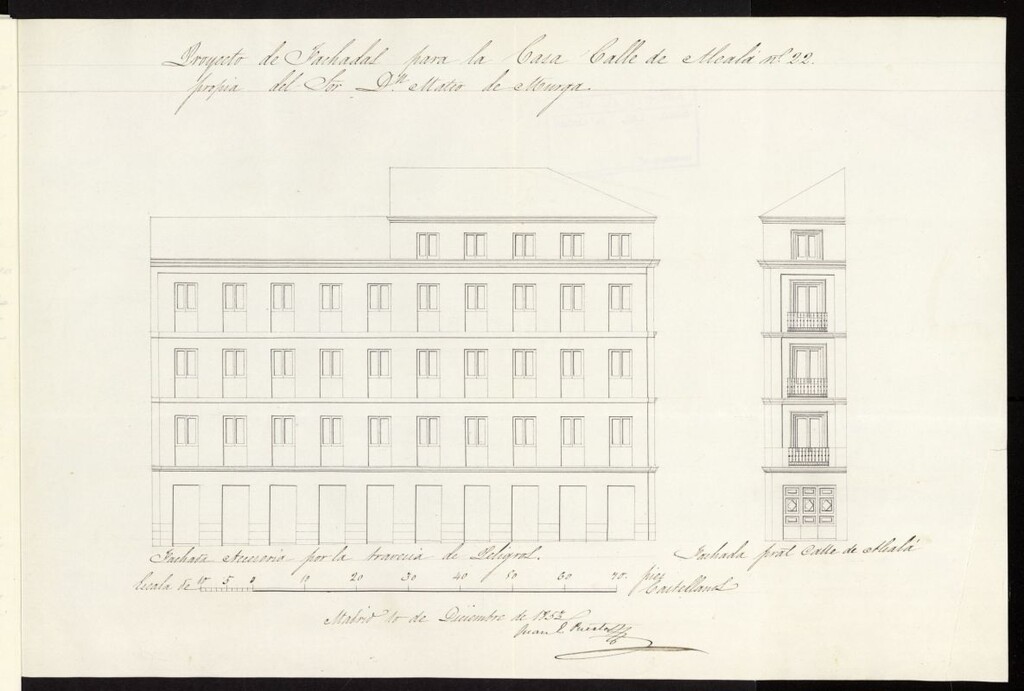 Proyecto de Fachadas para la Casa Calle de Alcalá nº 22.
propia del Sor. Dn. Mateo de Murga.
Fachada Accesoria por la travesia de Peligros.
Fachada pral Calle de Alcalá
Escala de 10 5 0 10 20 30 40 50 60 70. pies Castellanos
Madrid 10 de Diciembre de 1853
Juan E. Puerta